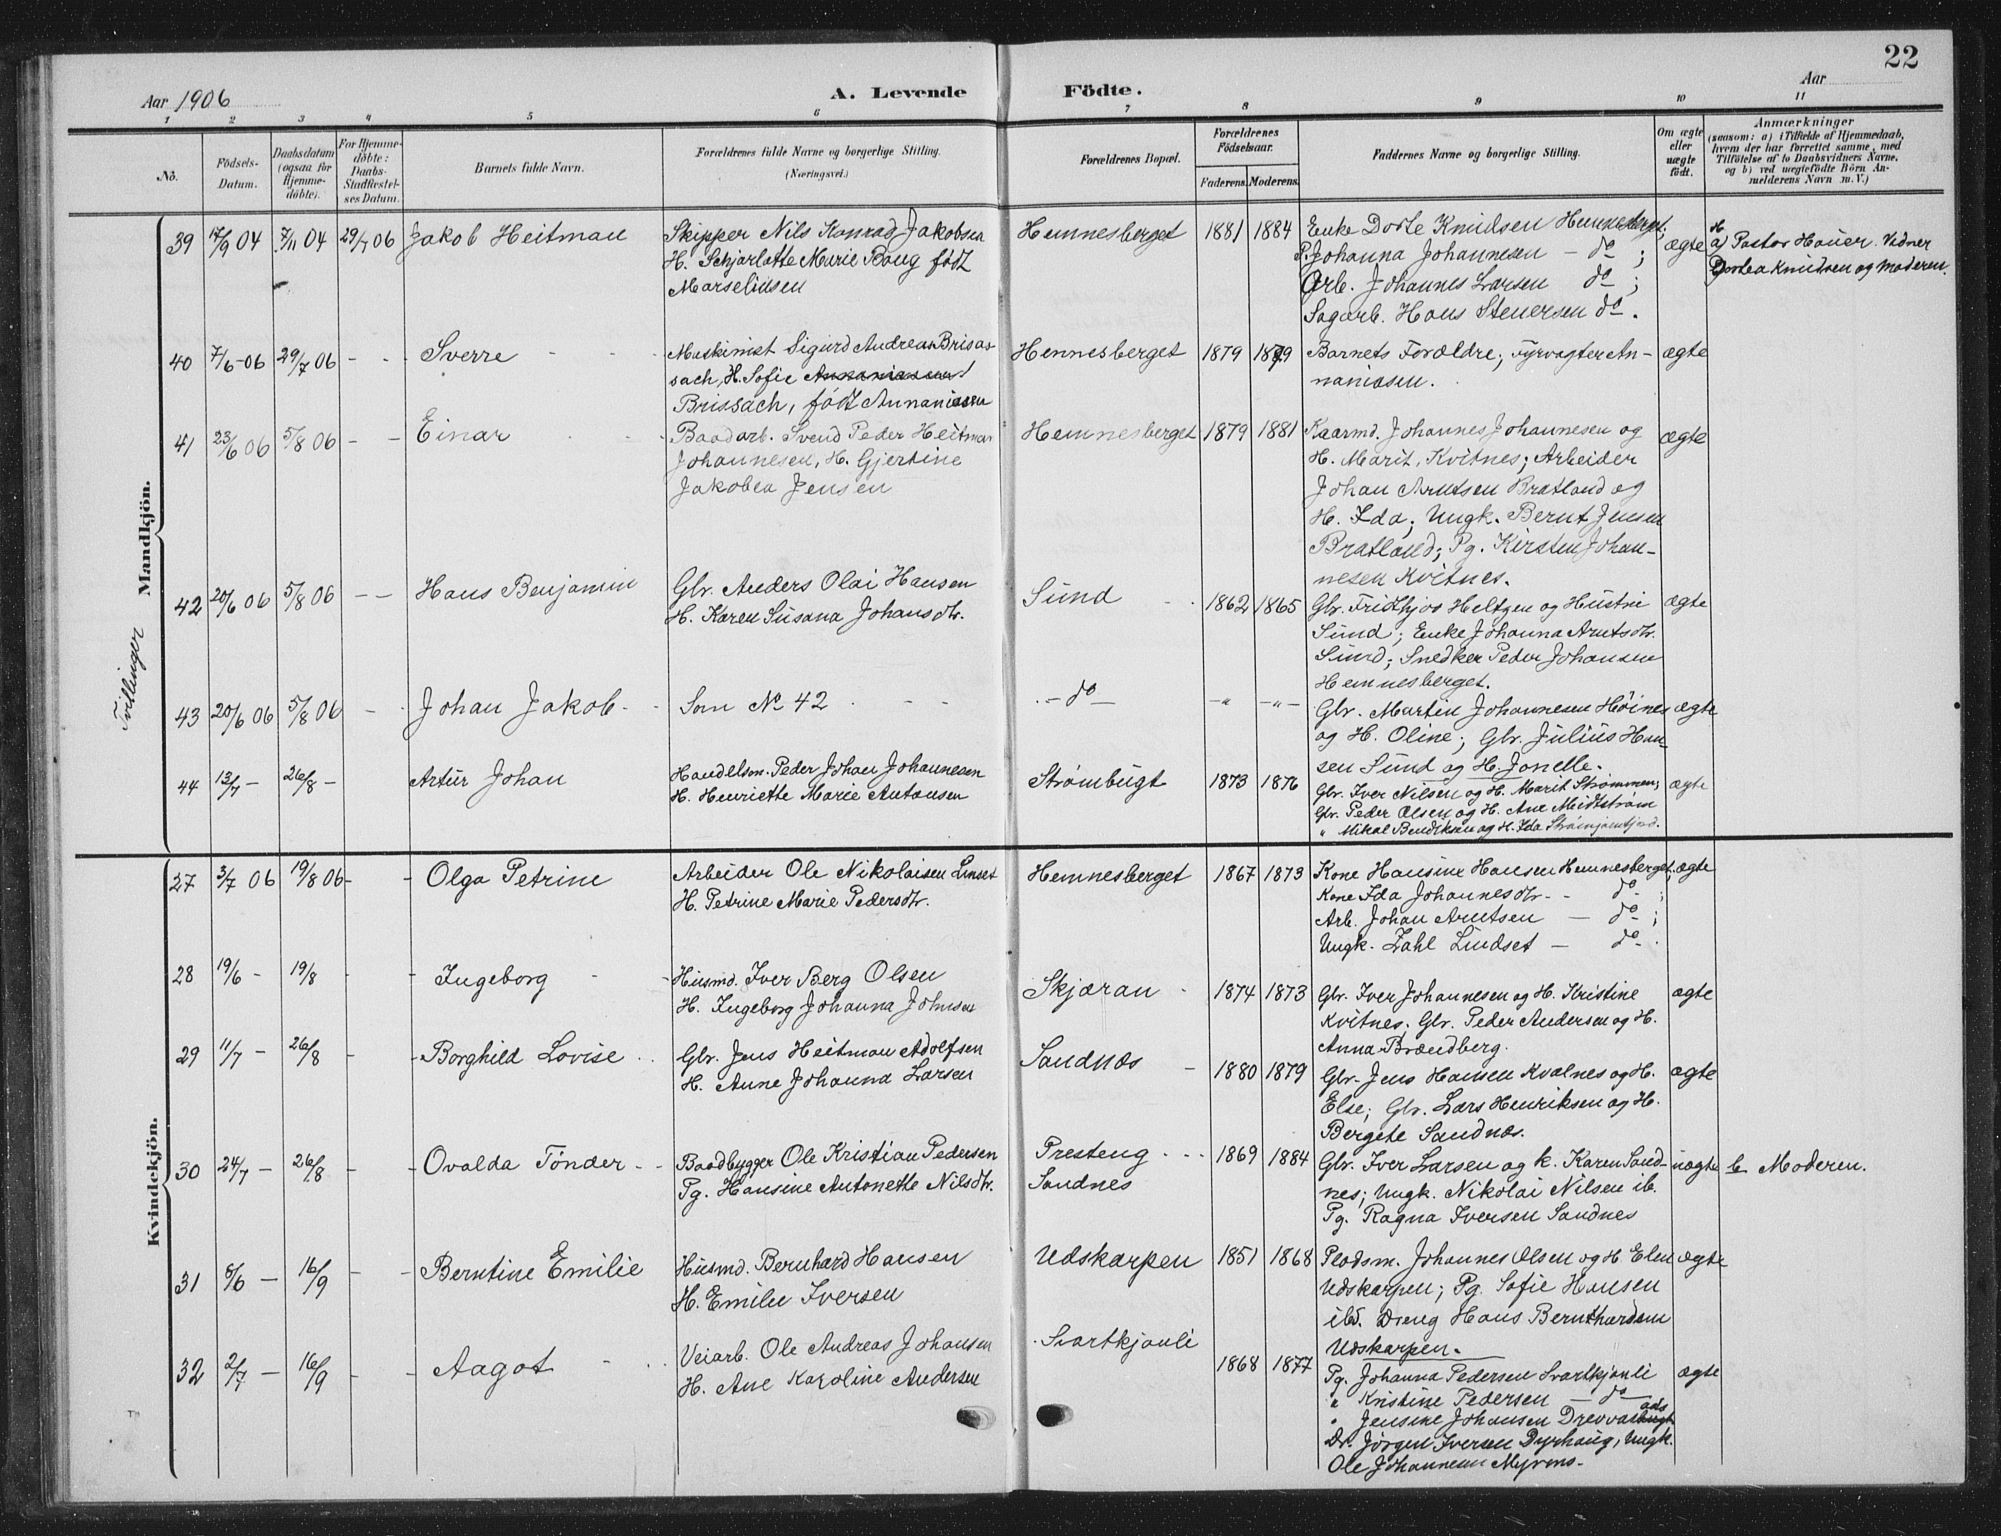 22
Aar 1906
A. Levende Födte.
Aar
1 2 3 4 5 6 7 8 9 10 11
No.
Födsels-
Datum.
Daabsdatum
(ogsaa for
Hjemme-
döbte).
For Hjemme-
döbte:
Daabs-
Stadfæstel-
ses Datum.
Barnets fulde Navn.
Forældrenes fulde Navne og borgerlige Stilling.
(Næringsvei.)
Forældrenes Bopæl.
Forældrenes
Födselsaar.
Faderens. Moderens.
Faddernes Navne og borgerlige Stilling.
Om ægte
eller
uægte
födt.
Anmærkninger
(saasom: a) i Tilfælde af Hjemmedaab,
hvem der har forrettet samme, med
Tilföielse af to Daabsvidners Navne,
og b) ved uægtefödte Börn An-
melderens Navn m. V.)
Mandkjön.
39 17/9 04 7/11 04 29/7 06 Jakob Heitman
Skipper Nils Konrad Jakobsen
H. Schjarlotte Marie Boug født
Marselinsen
Hemnesberget 1881 1884
Enke Dorte Knudsen Hemnesberget;
P. Johanna Johannesen — do ;
Arb. Johannes Larsen do ;
Sagarb. Hans Stenersen do.
ægte
H
a) Pastor Hauer. Vidner
Dortea Knudsen og Moderen.
40 7/6-06 29/7 06 - - Sverre
Maskinist Sigurd Andreas Brisas-
sach, H. Sofie
Brissach, født Annaniasen
Hennesberget 1879 1879
Barnets Forældre; Fyrvogter An-
naniasen.
ægte
41 23/6 06 5/8 06 - - Einar
Baadarb. Svend Peder Heitman
Johannesen, H. Gjertine
Jakobea Jensen
Hemnesberget 1879 1881
Kaarmd. Johannes Johannesen og
H. Marit, Kvitnes; Arbeider
Johan Arntsen Bratland og
H. Ida; Ungk. Bernt Jensen
Bratland; Pg. Kirsten Johan-
nesen Kvitnes.
ægte
Tvillinger
42 20/6 06 5/8 06 - - Hans Benjamin
Gbr. Anders Olai Hansen
H. Karen Susana Johansdtr.
Sund 1862 1865
Gbr. Fridthjov Heltzen og Hustru
Sund; Enke Johanna Arntsdtr.
Sund; Snedker Peder Johansen
Hemnesberget.
ægte
43 20/6 06 5/8 06 - Johan Jakob
Som No 42
- do - -"- -"-
Gbr. Martin Johannesen Høines
og H. Oline; Gbr. Julius Han-
sen Sund og H. Jonelle.
ægte
44 13/7 - 26/8 - Artur Johan
Handelsm. Peder Johan Johannesen
H. Henriette Marie Antonsen
Strømbugt 1873 1876
Gbr. Iver Nilsen og H. Marit Strømmen;
Gbr. Peder Olsen og H. Ane Midtstrøm
" Mikal Bendiksen og H. Ida
ægte
Kvindekjön.
27 3/7 06 19/8 06 - - Olga Petrine
Arbeider Ole Nikolaisen Linset
H. Petrine Marie Pedersdtr.
Hemnesberget 1867 1873
Kone Hansine Hansen Hemnesberget,
Kone Ida Johannesdtr. - do ;
Arb. Johan Arntsen — do ;
Ungk. Zahl Lindset — do.
ægte
28 19/6 - 19/8 - - Ingeborg
Husmd. Iver Berg Olsen
H. Ingeborg Johanna Johnsen
Skjæran 1874 1873
Gbr. Iver Johannesen og H. Kristine
Kvitnes; Gbr. Peder Andersen og H.
Anna Brændberg.
ægte
29 11/7 - 26/8 - - Borghild Lovise
Gbr. Jens Heitman Adolfsen
H. Anne Johanna Larsen
Sandnæs 1880 1879
Gbr. Jens Hansen Kvalnes og H.
Else; Gbr. Lars Henriksen og H.
Bergete Sandnæs.
ægte
30 24/7 - 26/8 - - Ovalda Tönder
Baadbygger Ole Kristian Pedersen
Pg. Hansine Antonette Nilsdtr.
Presteng
Sandnes
1869 1884
Gbr. Iver Larsen og k. Karen Sand-
nes; Ungk. Nikolai Nilsen ib.
Pg. Ragna Iversen Sandnes
uægte b. Moderen.
31 8/6 - 16/9 - - Berntine Emilie
Husmd. Bernhard Hansen
H. Emilie Iversen
Udskarpen 1851 1868
Plodsm. Johannes Olsen og H Elen
Udskarpen; Pg. Sofie Hansen
ibd. Dreng Hans Bernthardsen
Udskarpen.
ægte
32 2/7 - 16/9 - - Aagot
Veiarb. Ole Andreas Johansen
H. Ane Karoline Andersen
Svartkjønli 1868 1877
Pg. Johanna Pedersen Svartkjønli
" Kristine Pedersen — do
" Jensine Johansen
Dr. Jørgen Iversen Dyrhaug, Ungk.
Ole Johannesen
ægte